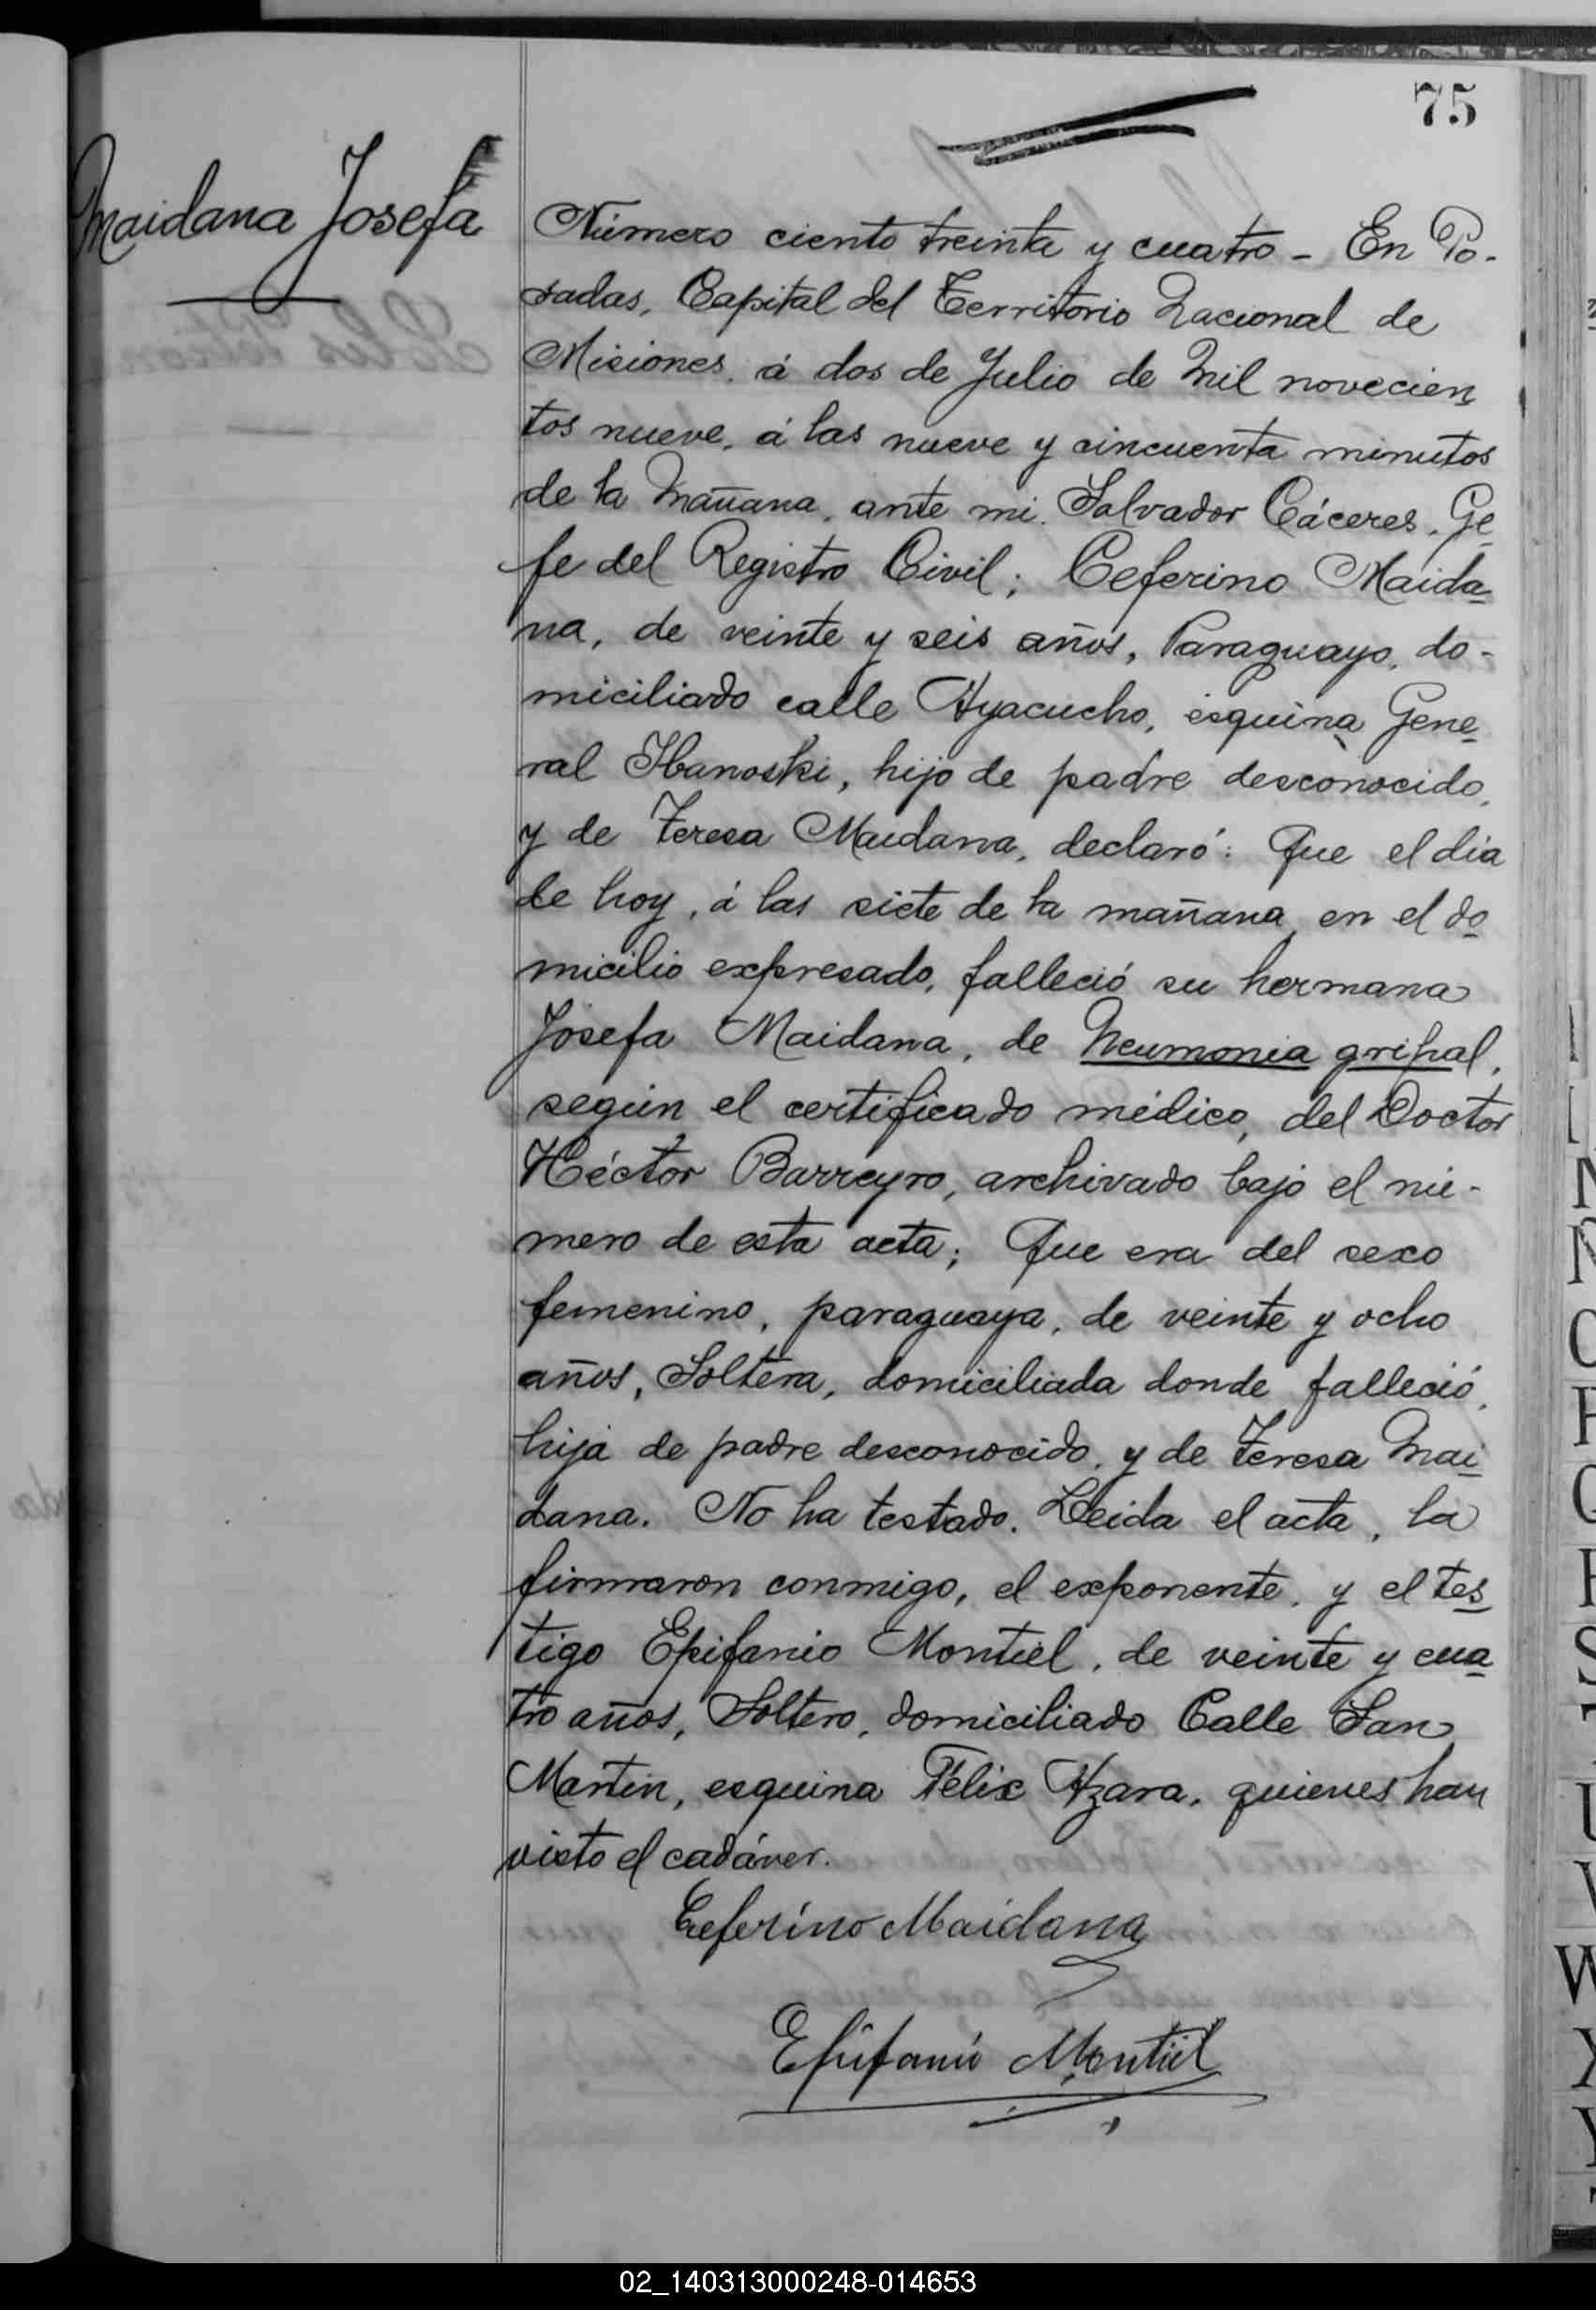 75
Maidana Josefa
Número ciento treinta y cuatro - En Po-
sadas, Capital del Territorio Nacional de
Misiones, á dos de Julio de Mil novecien
tos nueve, á las nueve y cincuenta minutos
de la Mañana, ante mi, Salvador Cáceres, Ge
fe del Registro Civil; Ceferino Maida
na, de veinte y seis años, Paraguayo, do-
miciliado calle Ayacucho, esquina Gene
ral Ibanoski, hijo de padre desconocido,
y de Teresa Maidana, declaró: Que el dia
de hoy, á las siete de la mañana, en el do
micilio expresado, falleció su hermana
Josefa Maidana, de Neumonia gripal,
según el certificado médico, del Doctor
Héctor Barreyro, archivado bajo el nú-
mero de esta acta; Que era del sexo
femenino, paraguaya, de veinte y ocho
años, Soltera, domiciliada donde falleció,
hija de padre desconocido, y de Teresa Mai
dana. No ha testado. Leida el acta, la
firmaron conmigo, el exponente, y el tes
tigo Epifanio Montiel, de veinte y cua
tro años, Soltero, domiciliado Calle San
Martin, esquina Félix Azara, quienes han
visto el cadáver.
Ceferino Maidana
Epifanio Montiel
N
Ñ
O
P
Q
R
S
T
U
V
W
X
Y
02_140313000248-014653